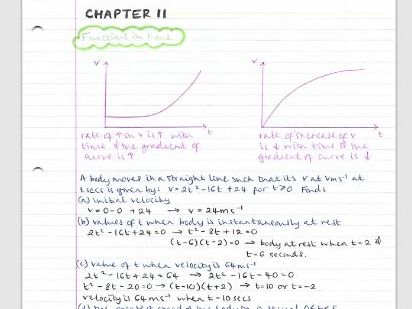 CHAPTER 11
Functions on time
v
v
t
t
rate of ↑ on v is ↑ with
time & the gradient of
curve is ↑
rate of increase of v
is ↓ with time & the
gradient of curve is ↓
A body moves in a straight line such that its v at vms⁻¹ at
t secs is given by: v=2t²-16t+24 for t≥0 Find:
(a) initial velocity
v=0-0+24 → v=24ms⁻¹
(b) values of t when body is instantaneously at rest
2t²-16t+24=0 → t²-8t+12=0
(t-6)(t-2)=0 → body at rest when t=2 &
t=6 seconds.
(c) value of t when velocity is 64ms⁻¹
2t²-16t+24=64 → 2t²-16t-40=0
t²-8t-20=0 → (t-10)(t+2) → t=10 or t=-2
velocity is 64ms⁻¹ when t=10 secs